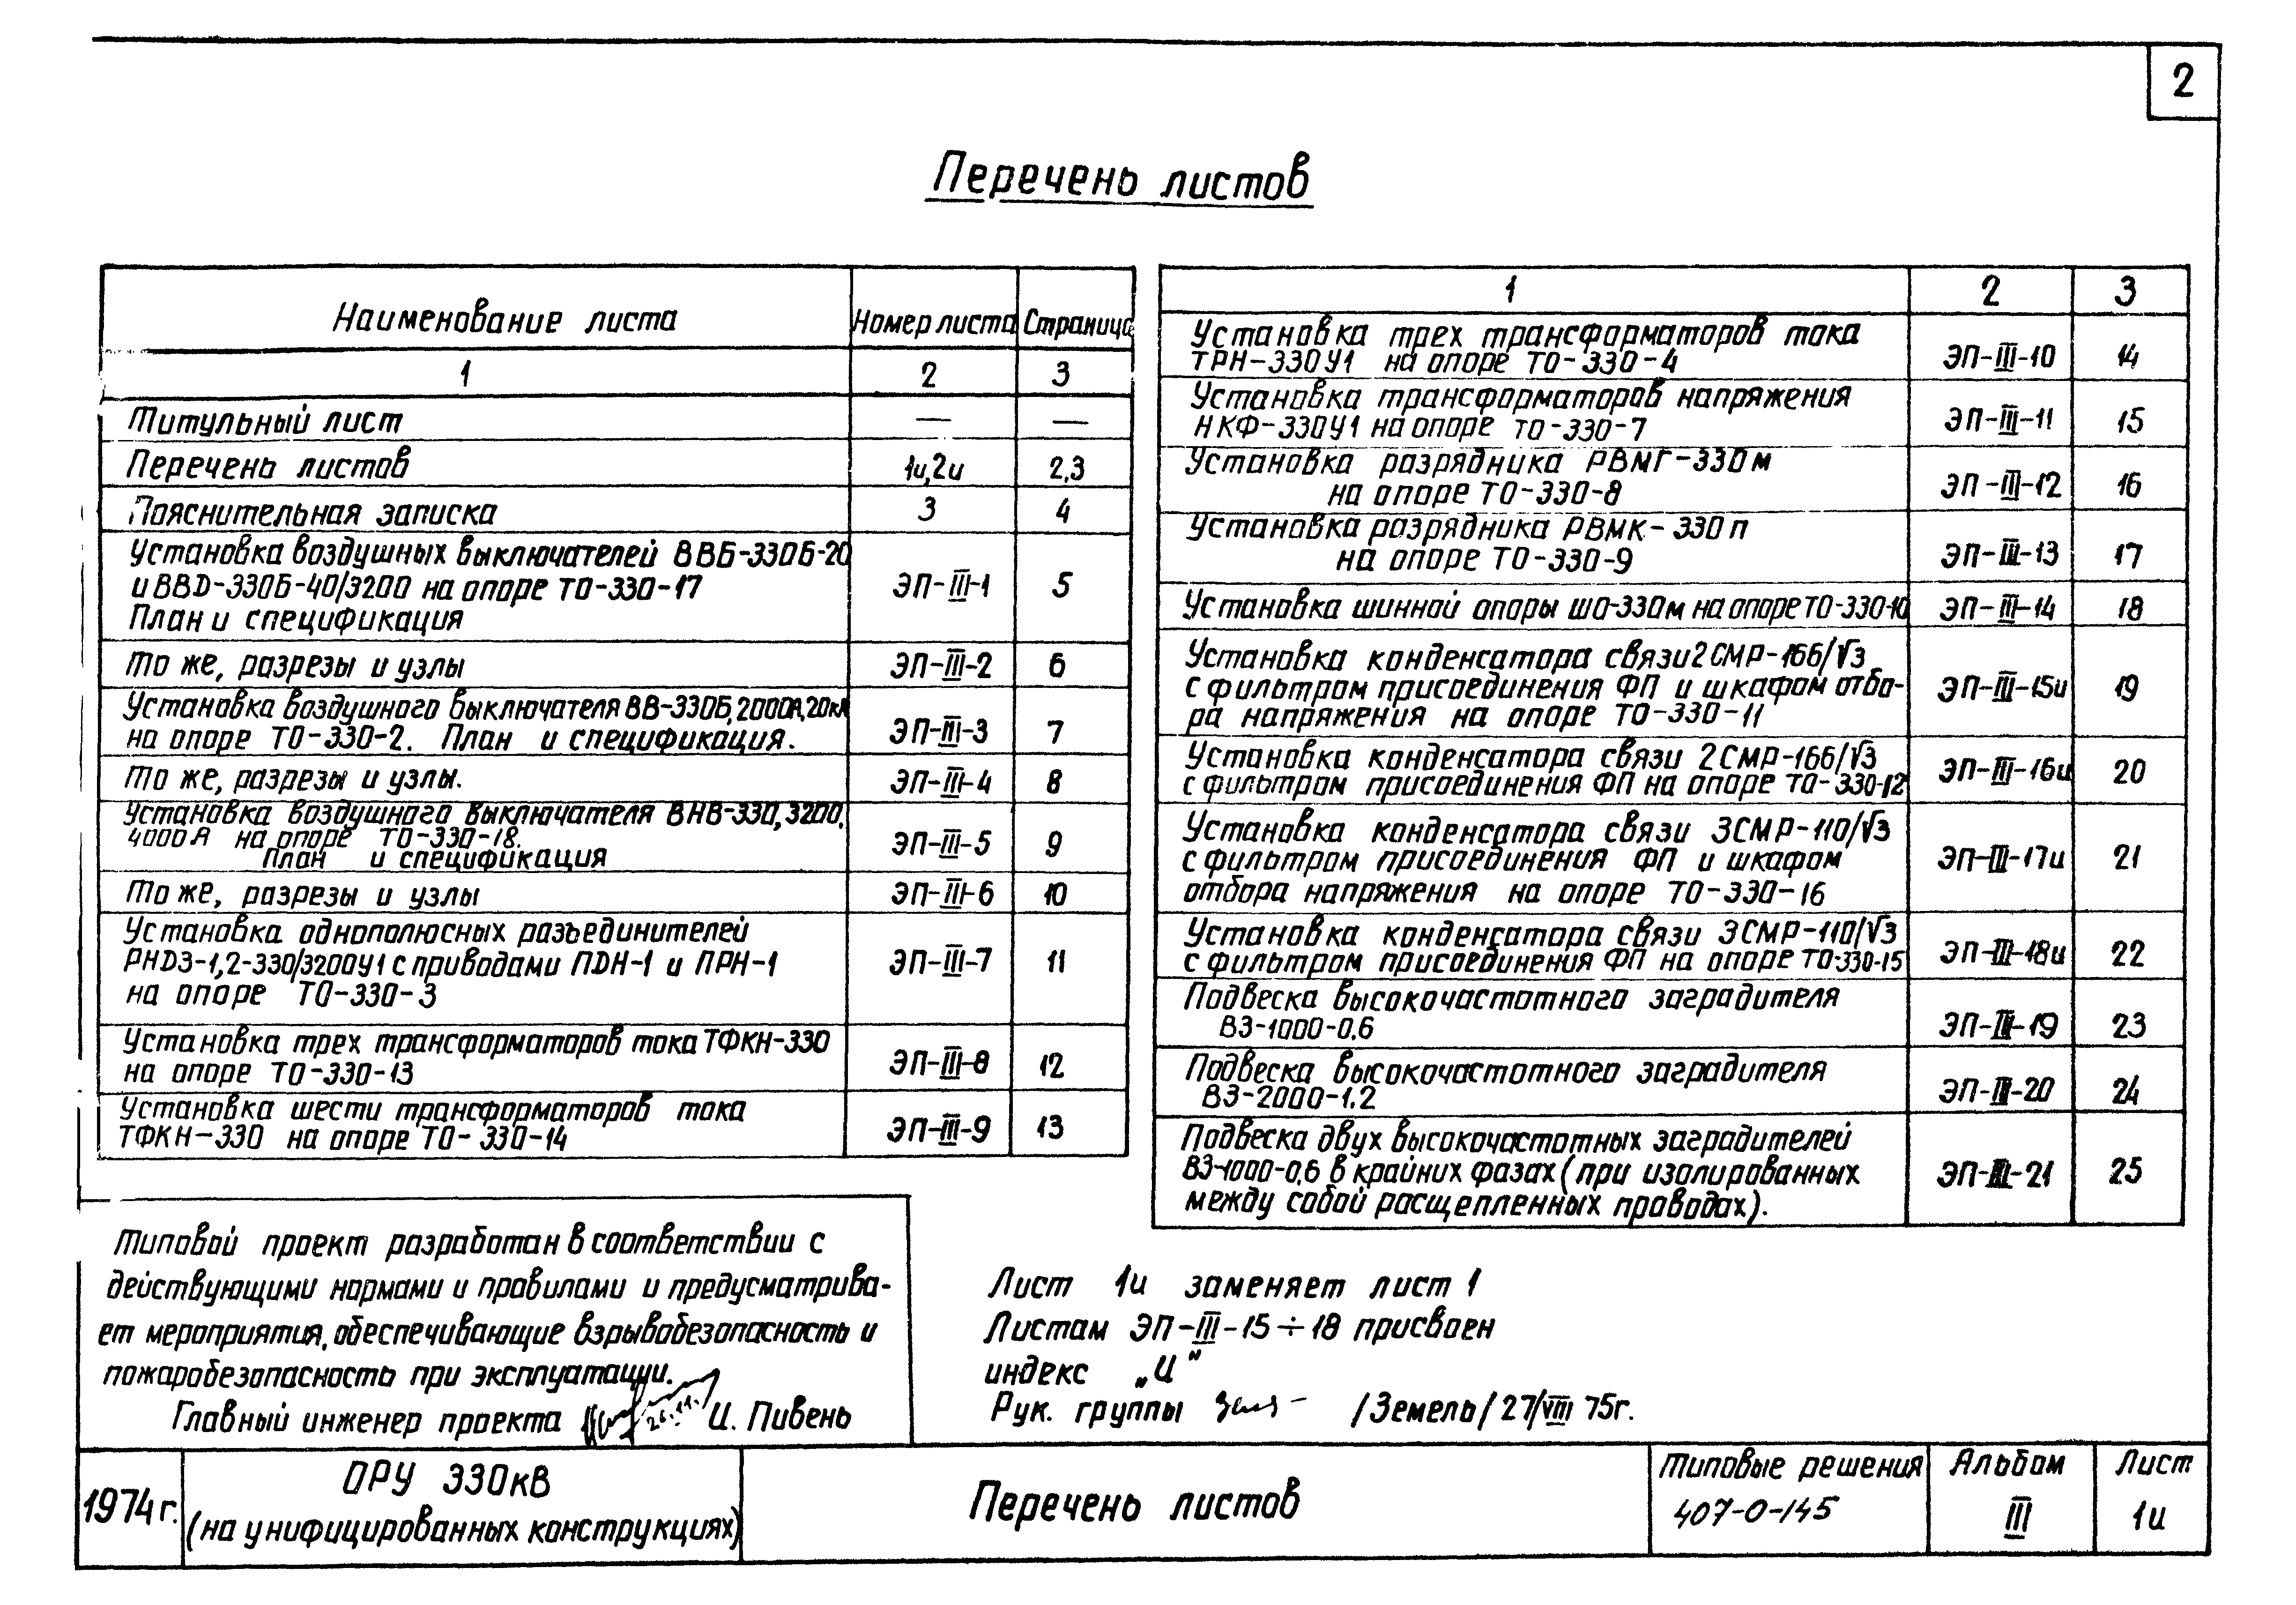 2
Перечень листов
Наименование листа Номер листа Страница
1 2 3
Титульный лист — —
Перечень листов 1и,2и 2,3
Пояснительная записка 3 4
Установка воздушных выключателей ВВБ-330Б-20
и ВВД-330Б-40/3200 на опоре ТО-330-17 ЭП-III-1 5
План и спецификация
То же, разрезы и узлы ЭП-III-2 6
Установка воздушного выключателя ВВ-330Б, 2000А, 20кА
на опоре ТО-330-2. План и спецификация. ЭП-III-3 7
То же, разрезы и узлы. ЭП-III-4 8
Установка воздушного выключателя ВНВ-330, 3200,
4000А на опоре ТО-330-18. ЭП-III-5 9
План и спецификация
То же, разрезы и узлы ЭП-III-6 10
Установка однополюсных разъединителей
РНДЗ-1,2-330/3200У1 с приводами ПДН-1 и ПРН-1 ЭП-III-7 11
на опоре ТО-330-3
Установка трех трансформаторов тока ТФКН-330
на опоре ТО-330-13 ЭП-III-8 12
Установка шести трансформаторов тока
ТФКН-330 на опоре ТО-330-14 ЭП-III-9 13
1 2 3
Установка трех трансформаторов тока
ТРН-330У1 на опоре ТО-330-4 ЭП-III-10 14
Установка трансформаторов напряжения
НКФ-330У1 на опоре ТО-330-7 ЭП-III-11 15
Установка разрядника РВМГ-330м
на опоре ТО-330-8 ЭП-III-12 16
Установка разрядника РВМК-330п
на опоре ТО-330-9 ЭП-III-13 17
Установка шинной опоры ШО-330м на опоре ТО-330-10 ЭП-III-14 18
Установка конденсатора связи 2СМР-166/√3
с фильтром присоединения ФП и шкафом отбо- ЭП-III-15и 19
ра напряжения на опоре ТО-330-11
Установка конденсатора связи 2СМР-166/√3
с фильтром присоединения ФП на опоре ТО-330-12 ЭП-III-16и 20
Установка конденсатора связи 3СМР-110/√3
с фильтром присоединения ФП и шкафом ЭП-III-17и 21
отбора напряжения на опоре ТО-330-16
Установка конденсатора связи 3СМР-110/√3
с фильтром присоединения ФП на опоре ТО-330-15 ЭП-III-18и 22
Подвеска высокочастотного заградителя
ВЗ-1000-0,6 ЭП-III-19 23
Подвеска высокочастотного заградителя
ВЗ-2000-1.2 ЭП-III-20 24
Подвеска двух высокочастотных заградителей
ВЗ-1000-0,6 в крайних фазах (при изолированных ЭП-III-21 25
между собой расщепленных проводах).
Типовой проект разработан в соответствии с
действующими нормами и правилами и предусматрива-
ет мероприятия, обеспечивающие взрывобезопасность и
пожаробезопасность при эксплуатации.
Главный инженер проекта И. Пивень
Лист 1и заменяет лист 1
Листам ЭП-III-15÷18 присвоен
индекс „И"
Рук. группы /Земель/ 27/VIII 75г.
1974 г.
ОРУ 330кВ
(на унифицированных конструкциях)
Перечень листов
Типовые решения
407-0-145
Альбом
III
Лист
1и